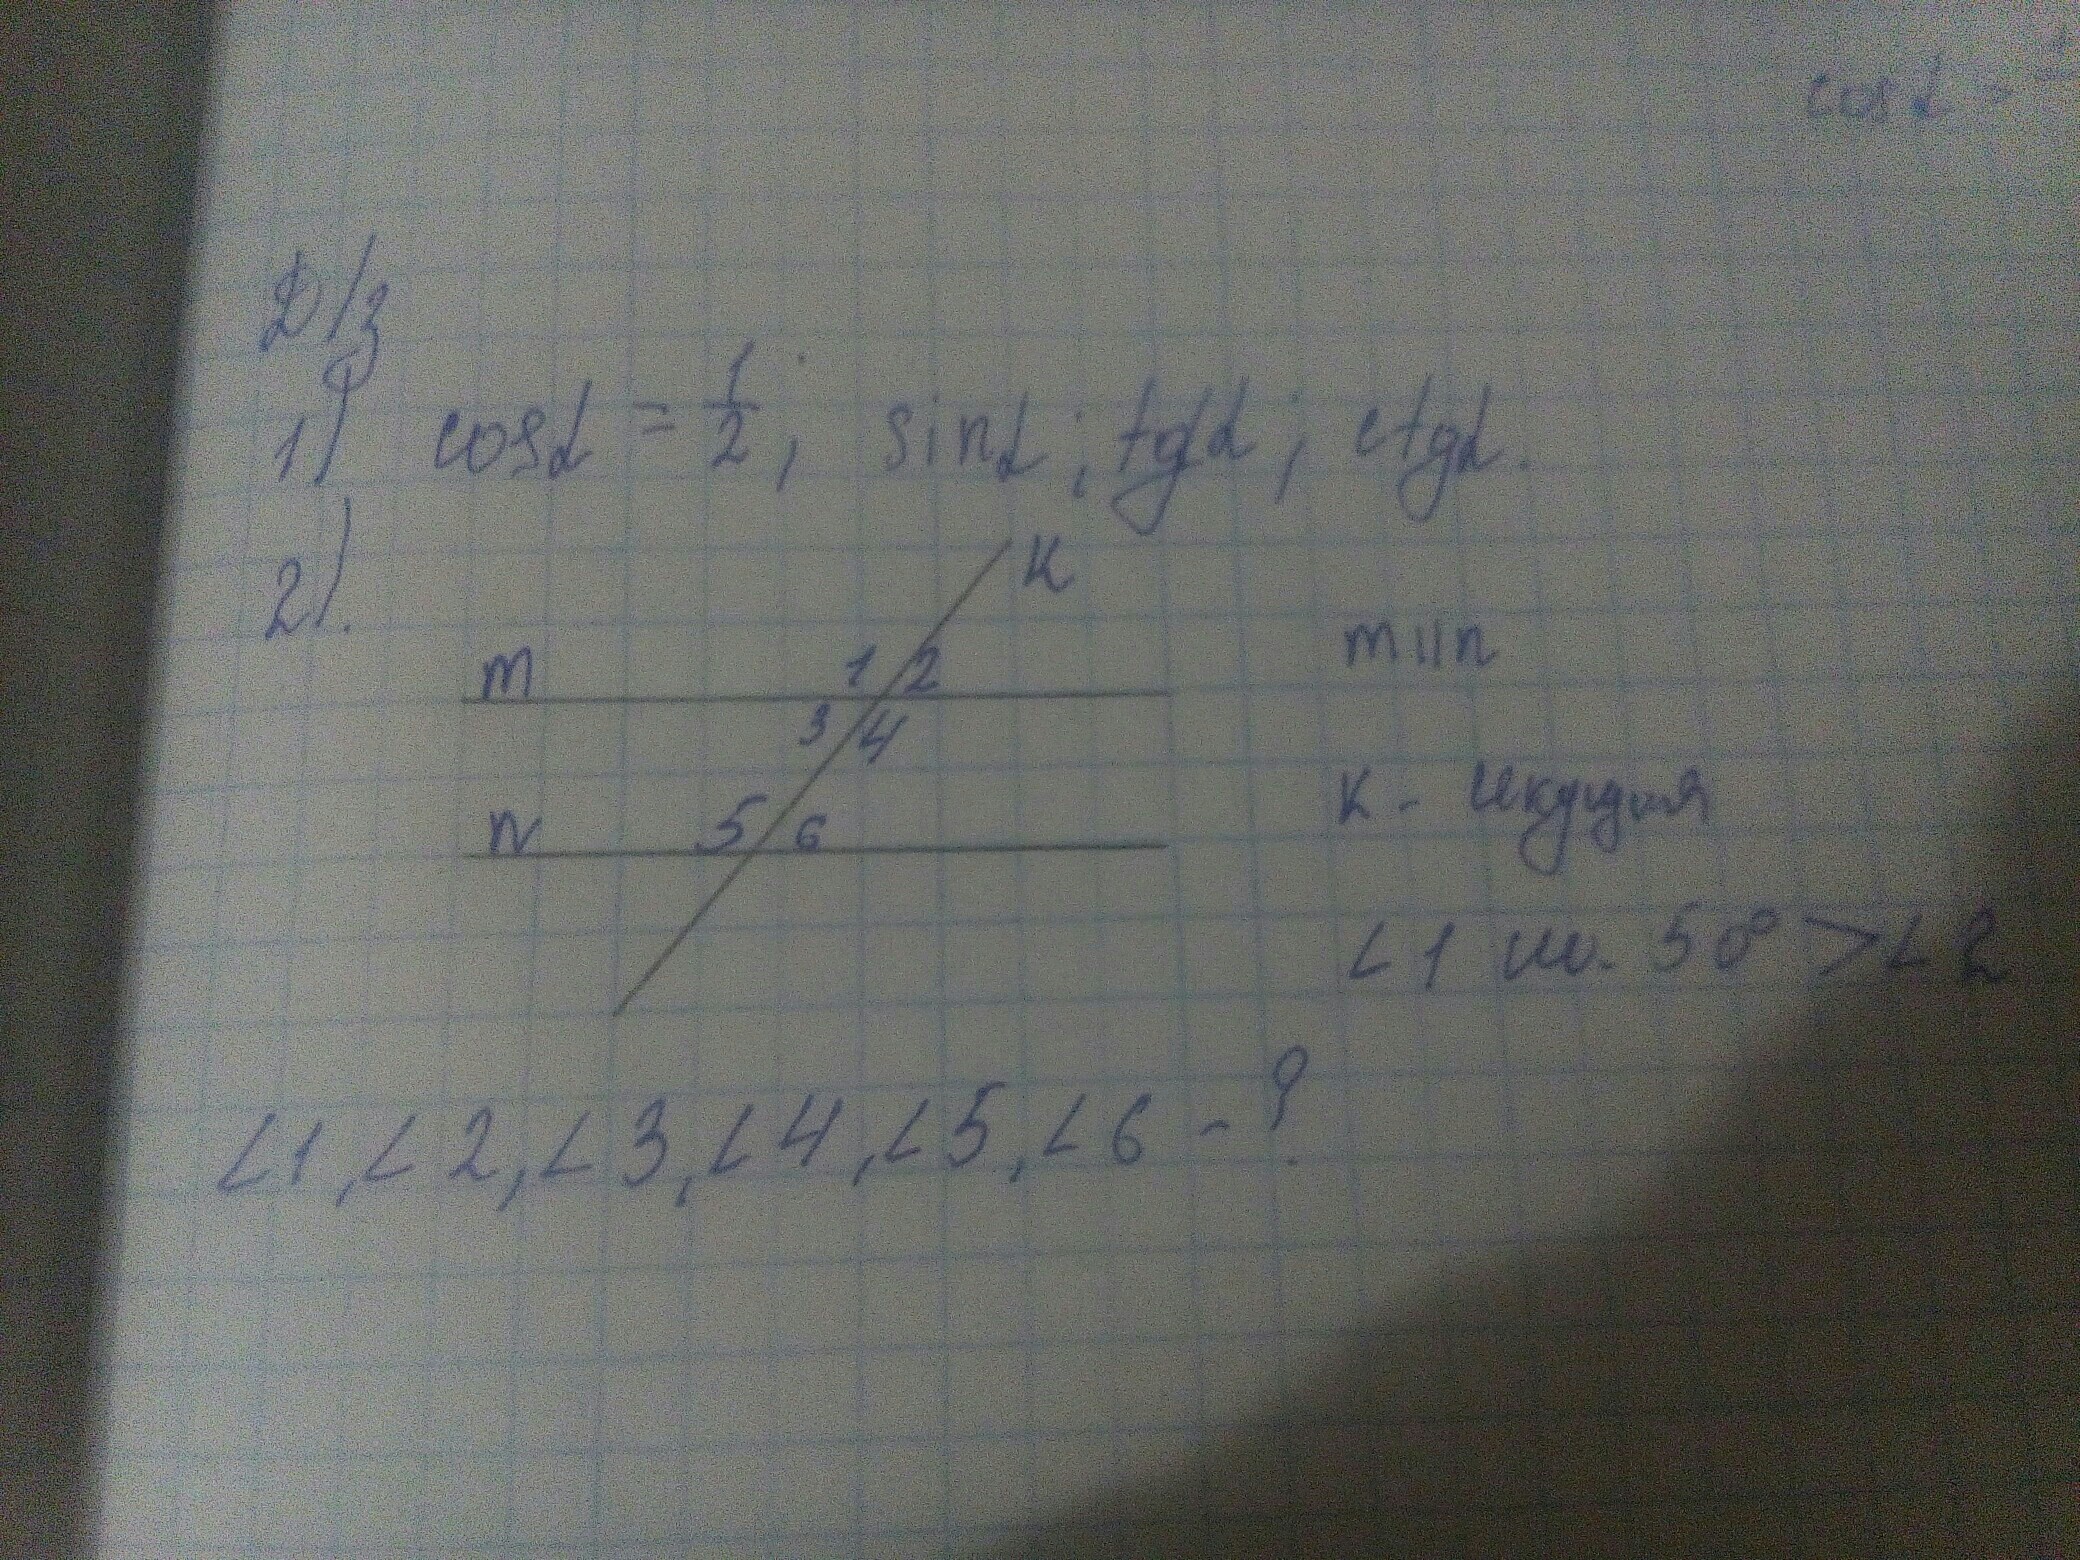 cosα =
Д/з
1) cosα = 1/2, sinα; tgα; ctgα.
2).
K
m 1 2 m || n
3 4
n 5 6 K - секущая
∠1 на 50° > ∠2
∠1, ∠2, ∠3, ∠4, ∠5, ∠6 - ?